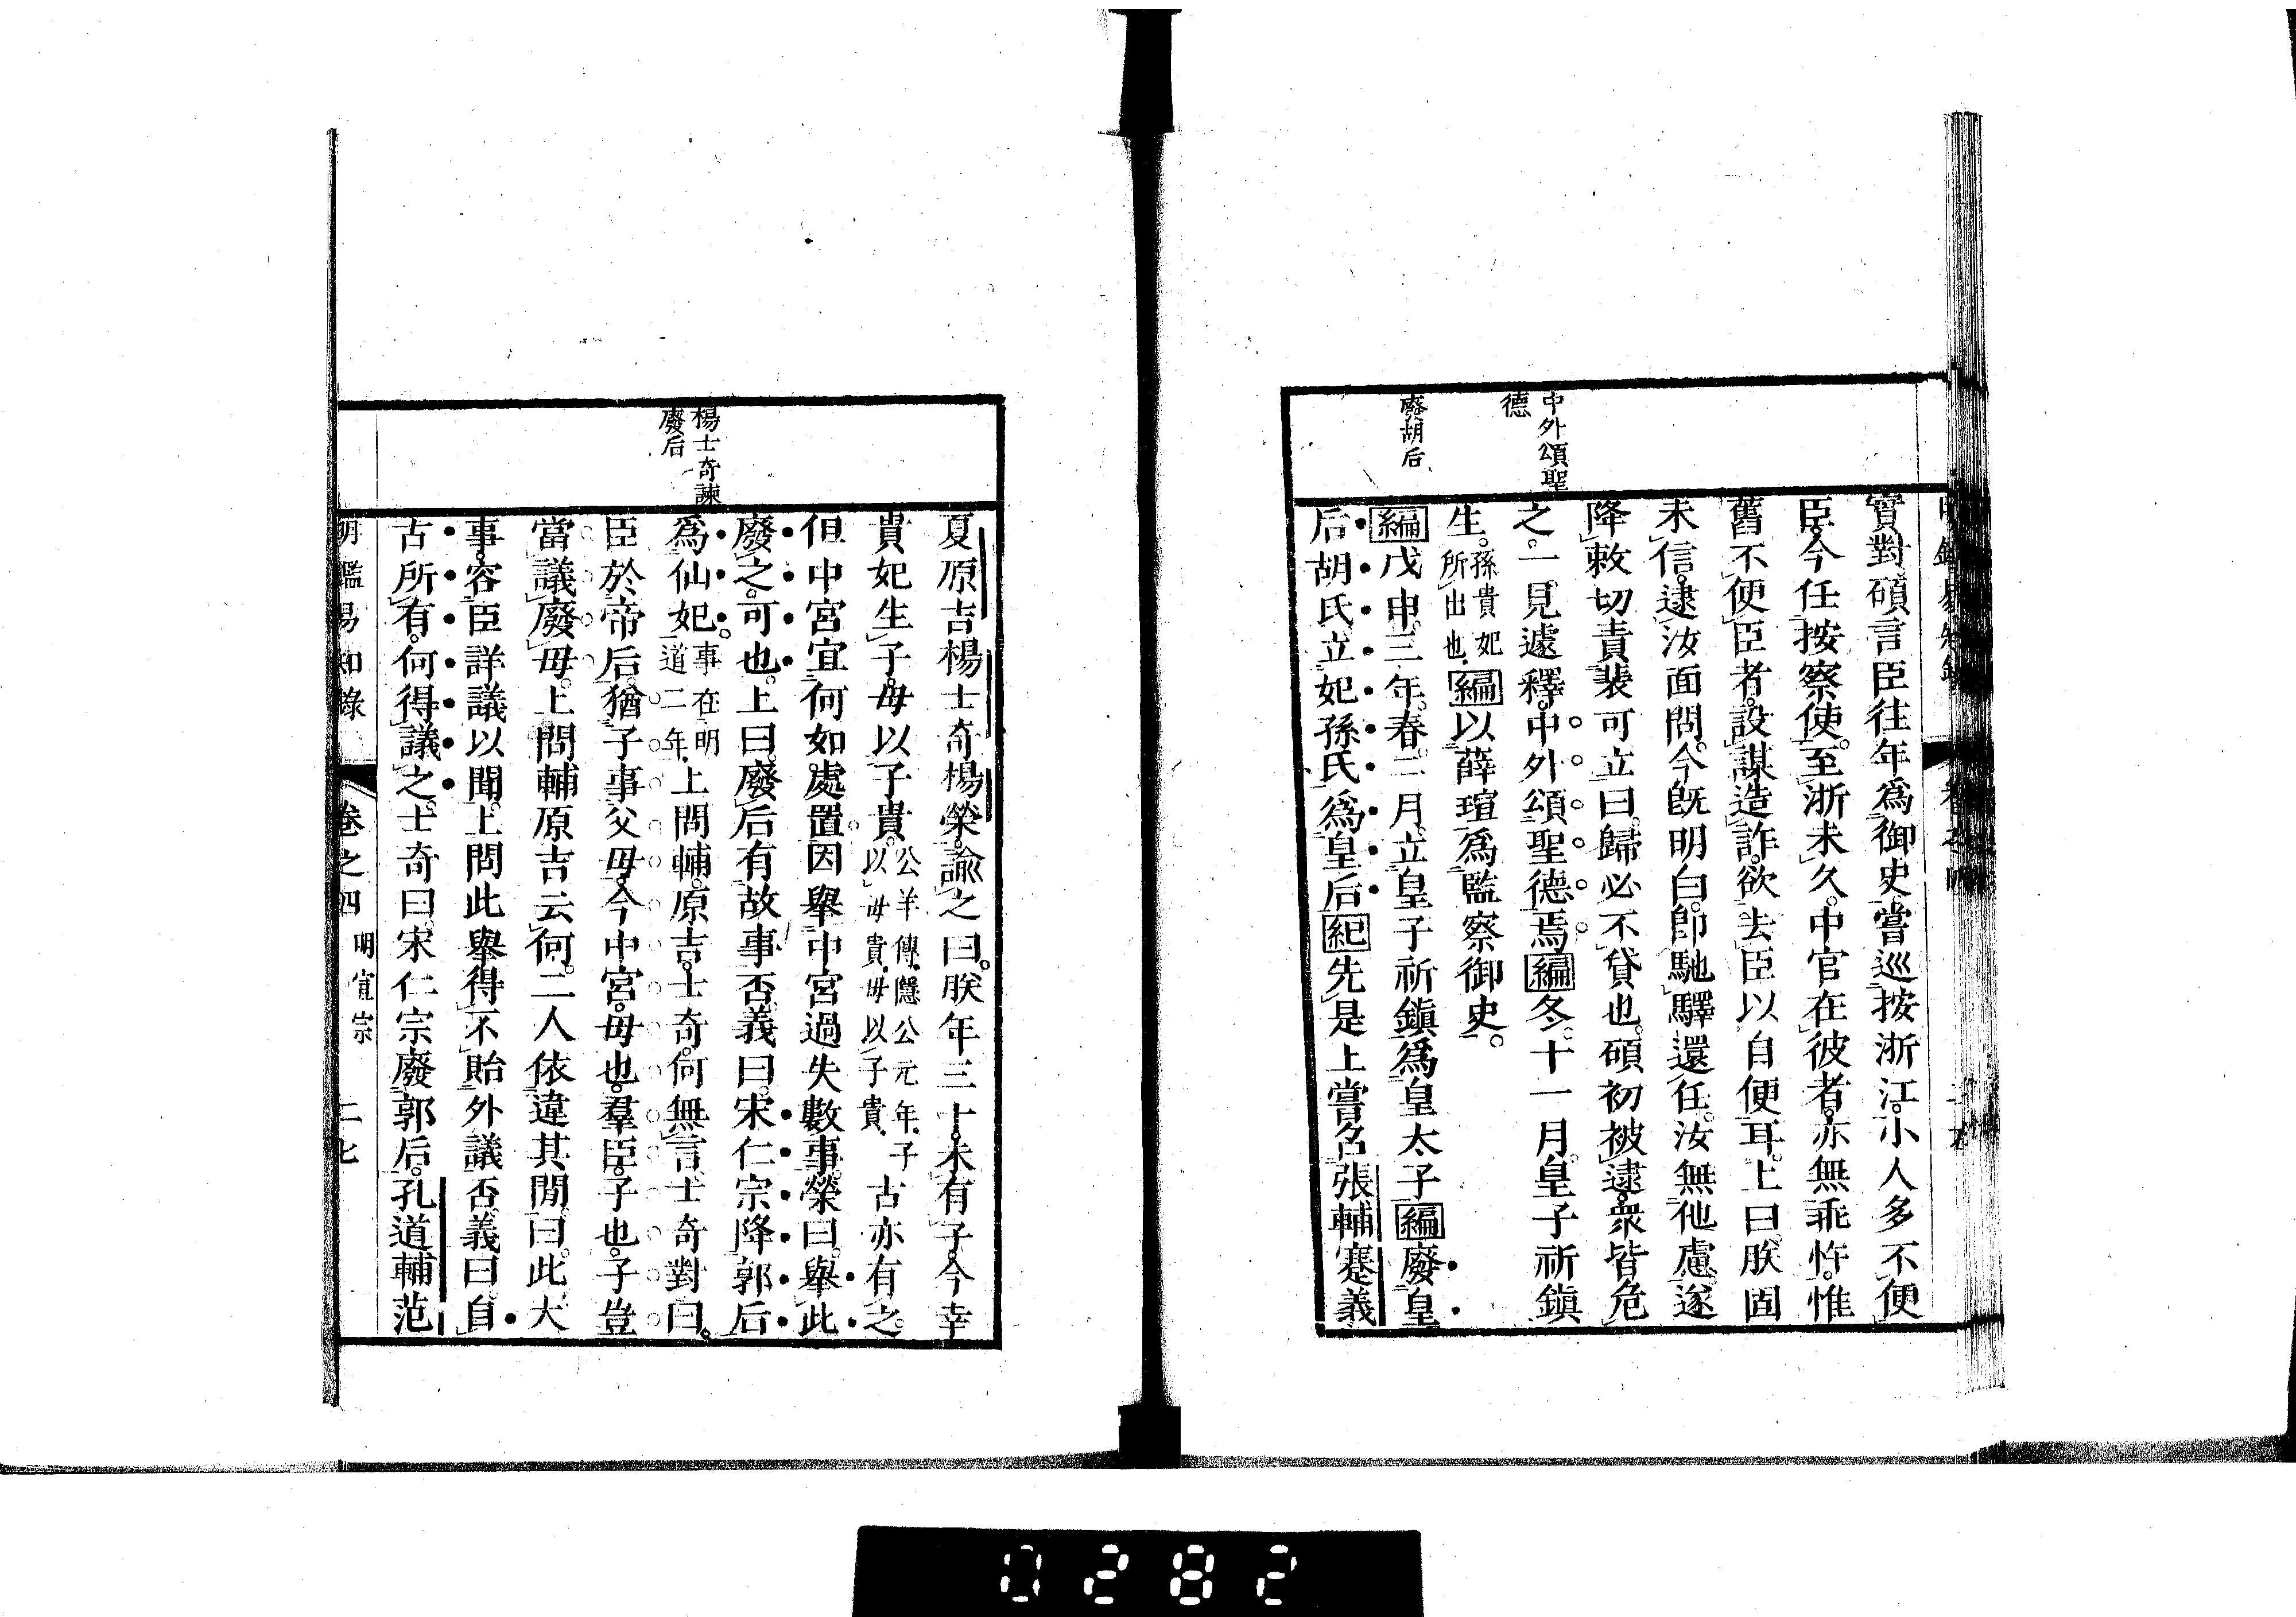 中外頌聖
德
廢胡后
實對碩言臣往年爲御史嘗巡按浙江小人多不便
臣今任按察使至浙未久中官在彼者亦無乖忤惟
舊不便臣者設謀造詐欲去臣以自便耳上曰朕固
未信逮汝面問今旣明白卽馳驛還任汝無他慮遂
降敕切責裴可立曰歸必不貸也碩初被逮衆皆危
之一見遽釋中外頌聖德焉編冬十一月皇子祈鎮
生孫貴妃所出也編以薛瑄爲監察御史
編戊申三年春二月立皇子祈鎮爲皇太子編廢皇
后胡氏立妃孫氏爲皇后紀先是上嘗名張輔蹇義
楊士奇諫
廢后
夏原吉楊士奇楊榮諭之曰朕年三十未有子今幸
貴妃生子母以子貴公羊傳隱公元年子以母貴母以子貴古亦有之
但中宮宜何如處置因舉中宮過失數事榮曰舉此
廢之可也上曰廢后有故事否義曰宋仁宗降郭后
爲仙妃事在明道二年上問輔原吉士奇何無言士奇對曰
臣於帝后猶子事父母今中宮母也羣臣子也子豈
當議廢母上問輔原吉云何二人依違其閒曰此大
事容臣詳議以聞上問此舉得不貽外議否義曰自
古所有何得議之士奇曰宋仁宗廢郭后孔道輔范
明鑑易知錄 卷之四 明宣宗 二七
0282